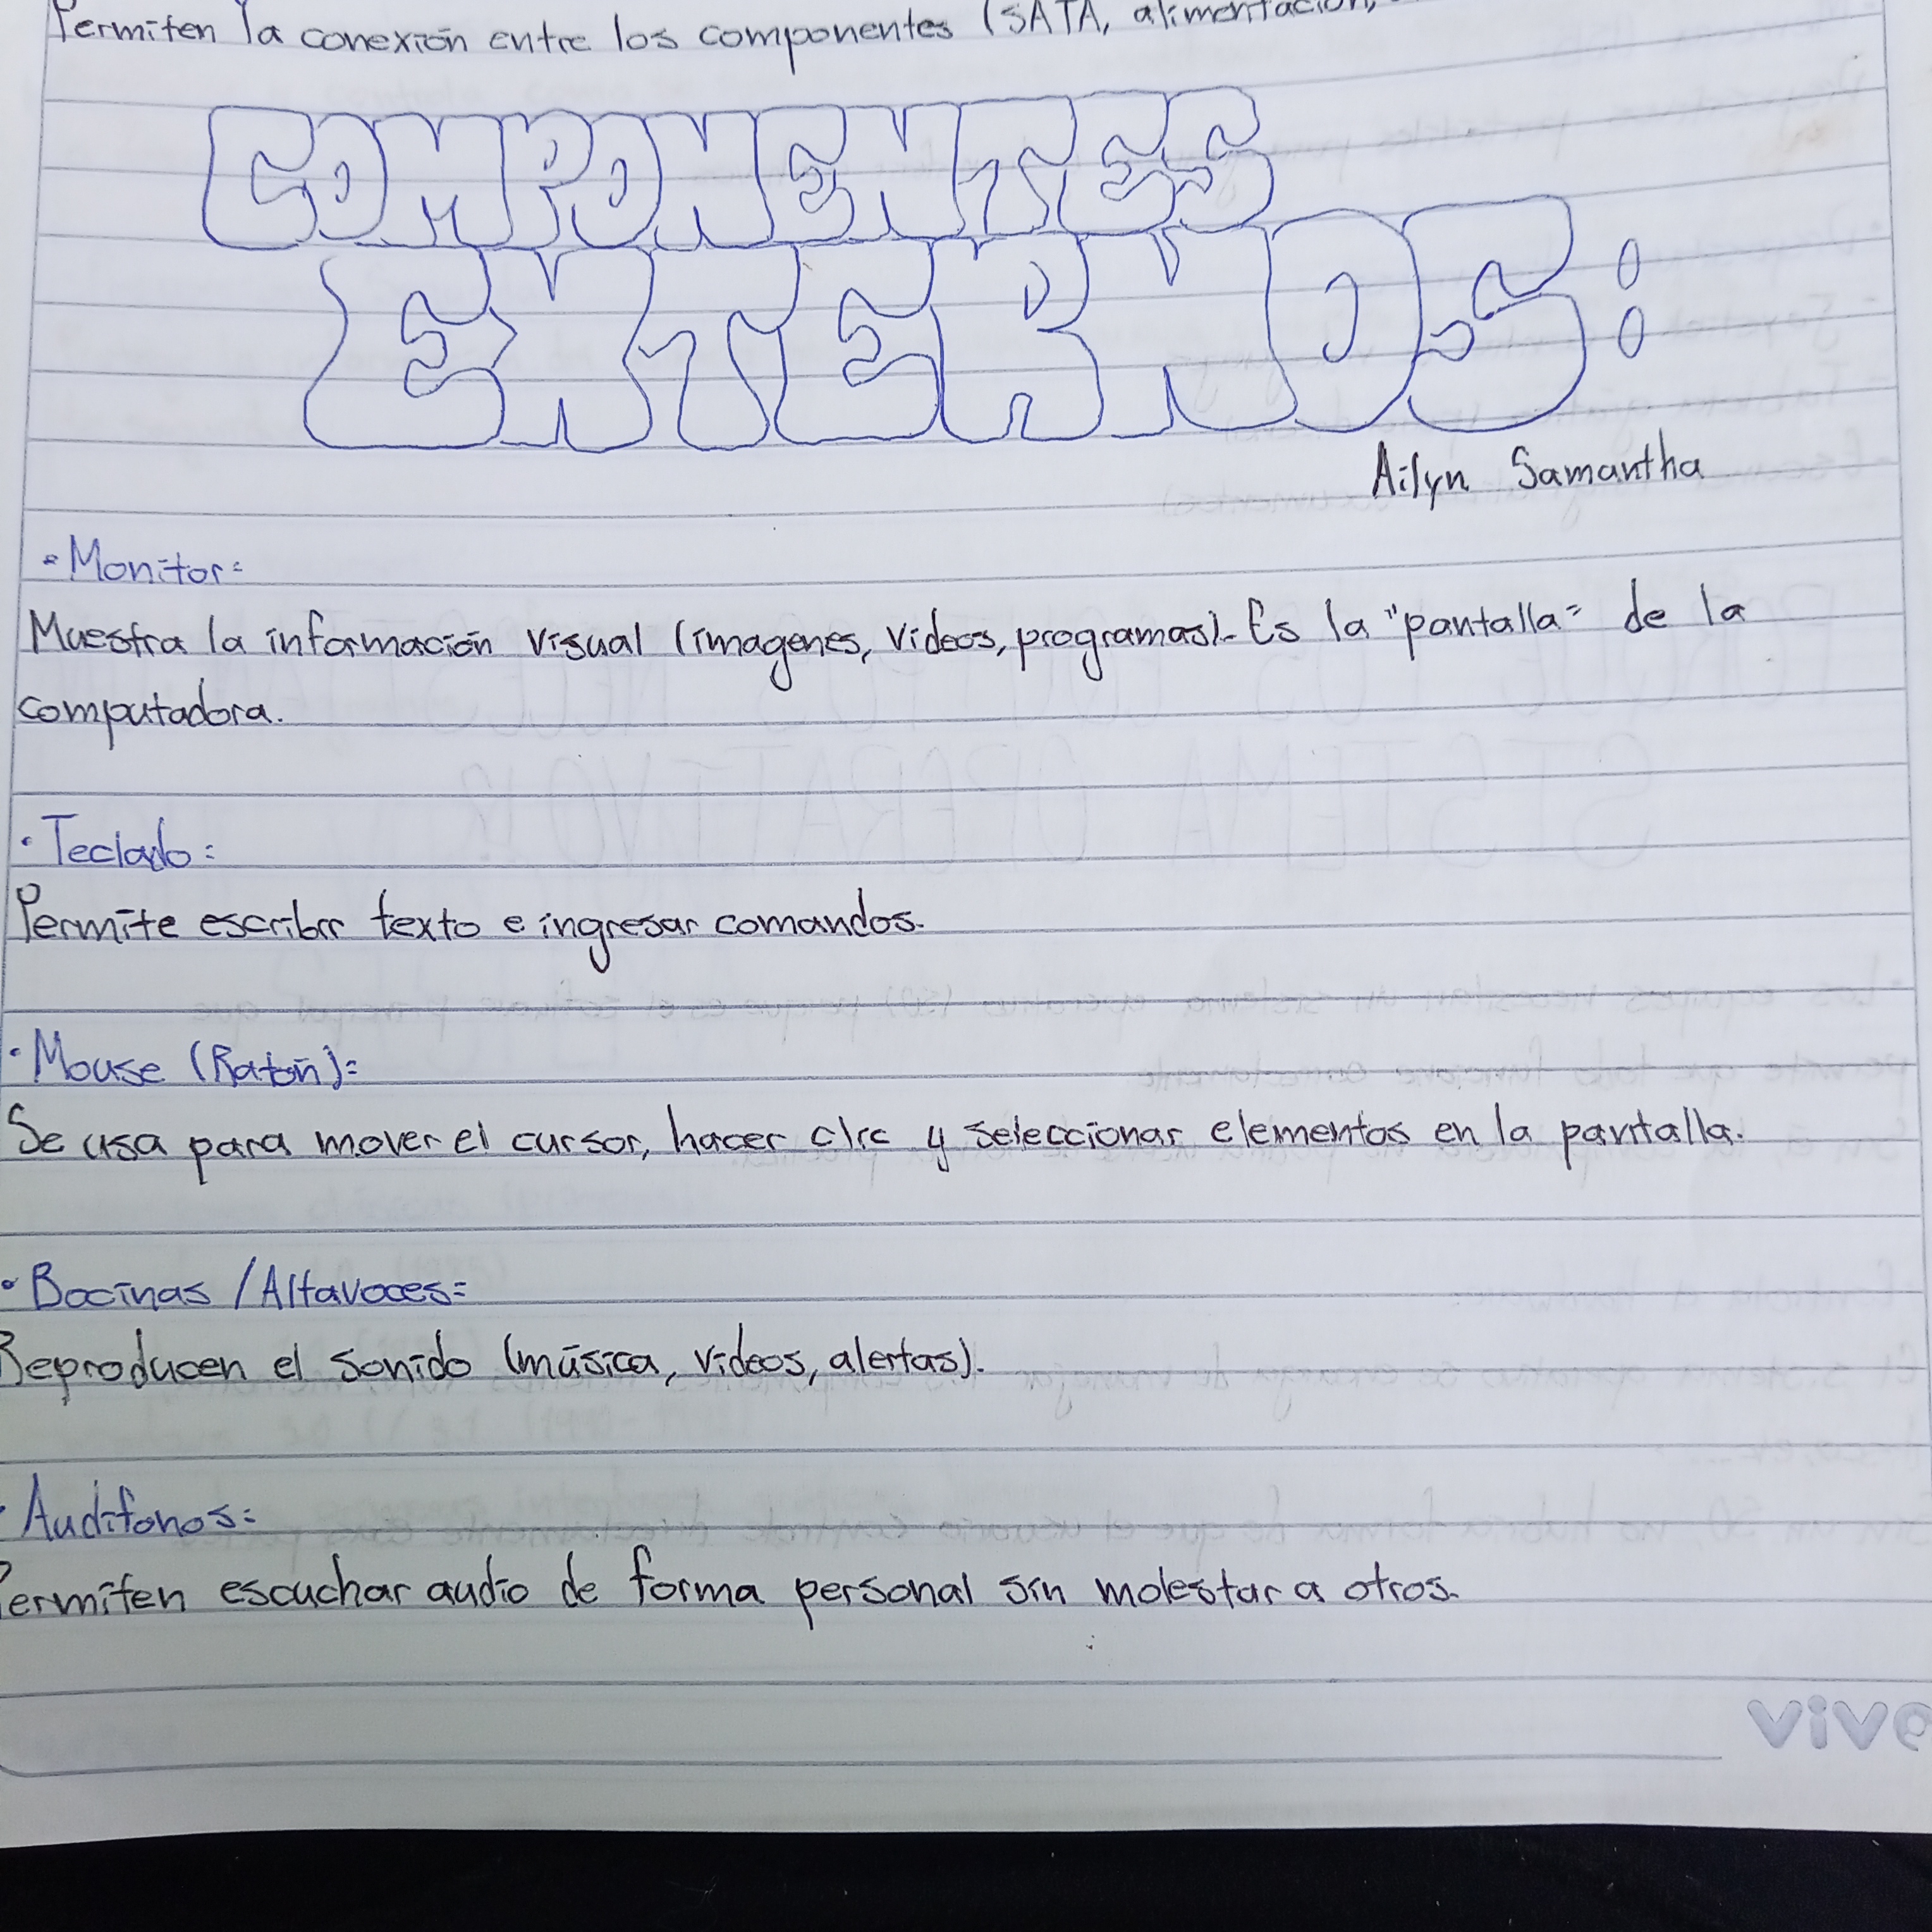 Permiten la conexión entre los componentes (SATA, alimentación,
COMPONENTES
EXTERNOS:
Ailyn Samantha
• Monitor:
Muestra la información visual (imagenes, videos, programas). Es la "pantalla" de la
computadora.
• Teclado:
Permite escribir texto e ingresar comandos.
• Mouse (Ratón):
Se usa para mover el cursor, hacer clic y seleccionar elementos en la pantalla.
• Bocinas / Altavoces:
Reproducen el sonido (música, videos, alertas).
• Audifonos:
Permiten escuchar audio de forma personal sin molestar a otros.